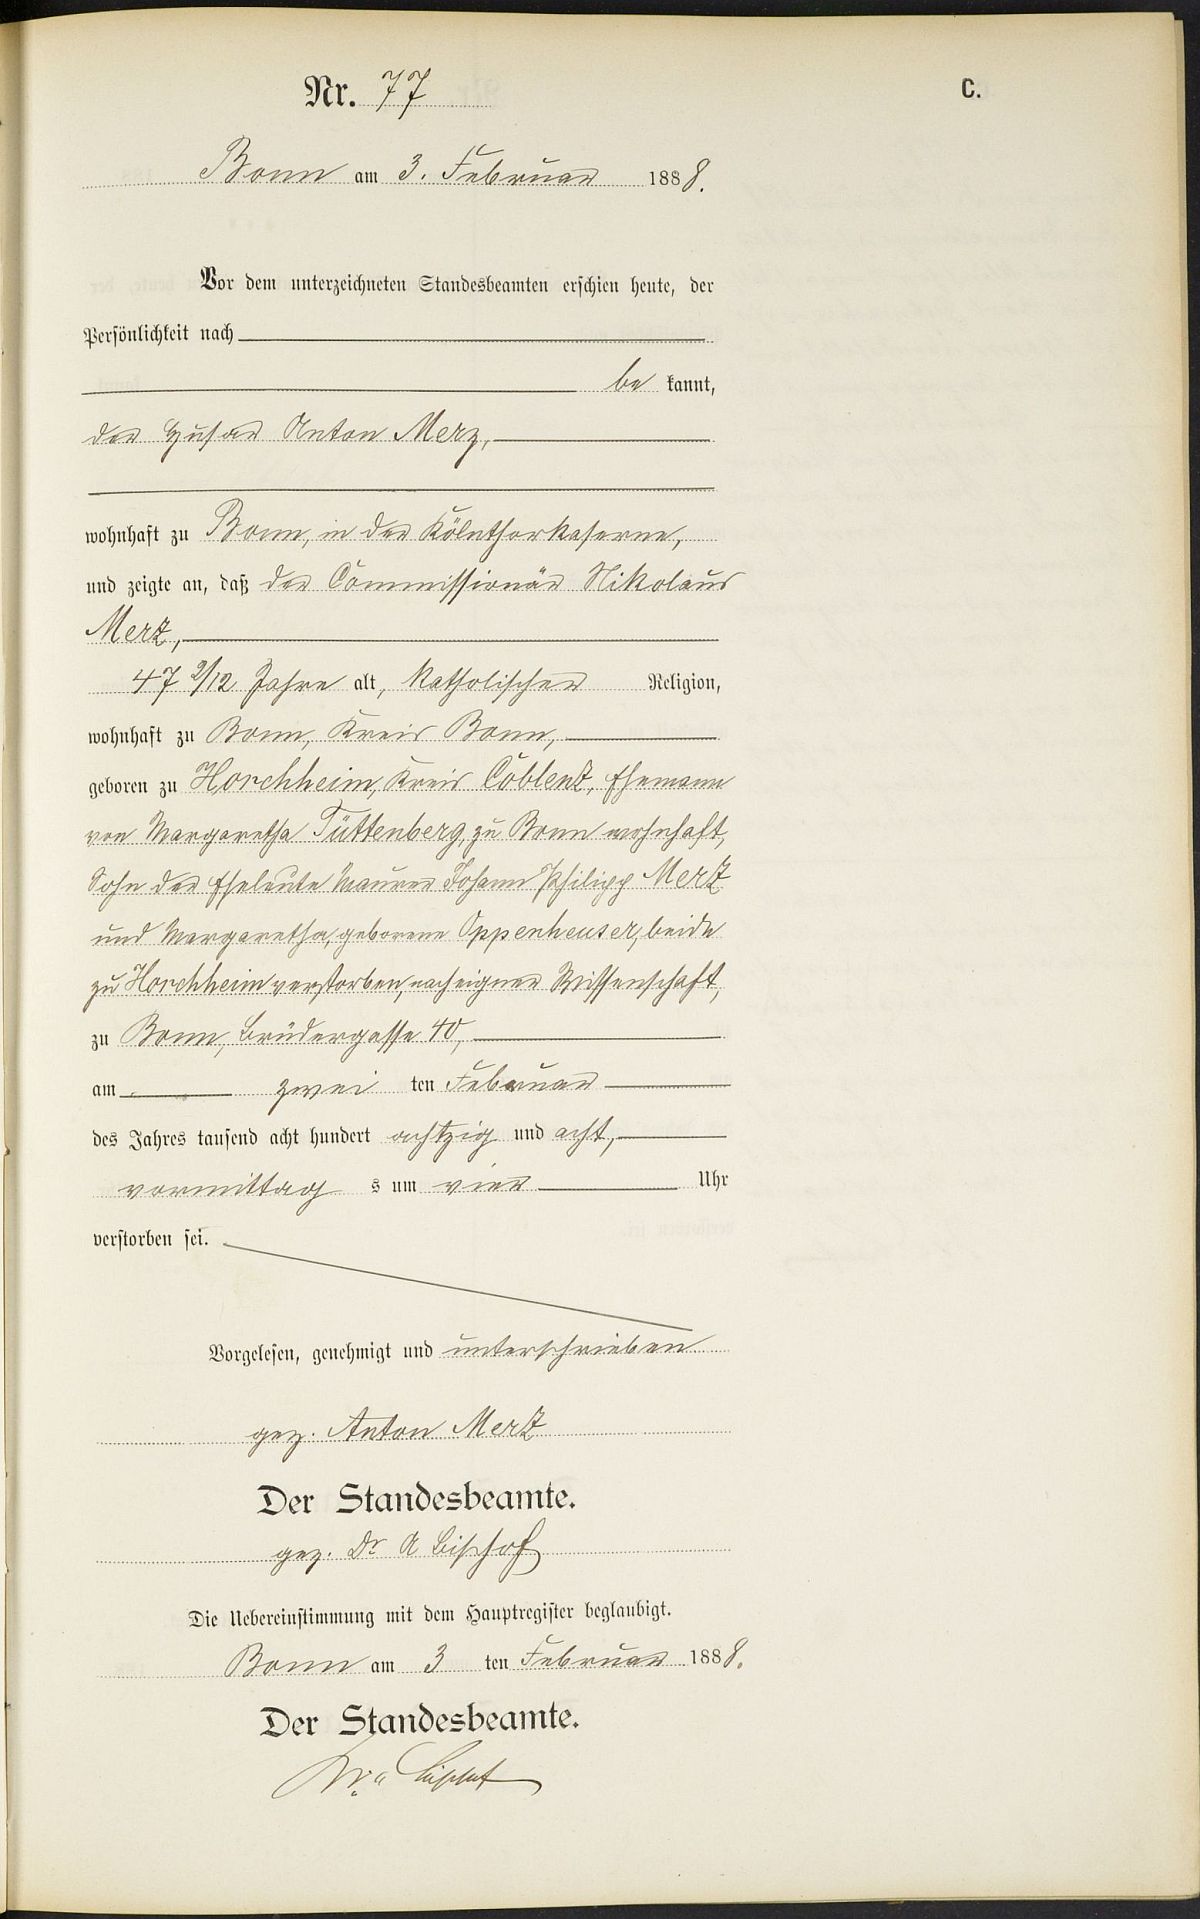 Nr. 77
C.
Bonn am 3. Februar 1888.
Vor dem unterzeichneten Standesbeamten erschien heute, der
Persönlichkeit nach
be kannt,
der Husar Anton Merz,
wohnhaft zu Bonn, in der Kölnthorkaserne,
und zeigte an, daß der Commissionär Nikolaus
Merz,
47 2/12 Jahre alt, katholischer Religion,
wohnhaft zu Bonn, Kreis Bonn,
geboren zu Horchheim, Kreis Coblenz, Ehemann
von Margaretha Tüttenberg, zu Bonn wohnhaft,
Sohn der Eheleute Maurer Johann Philipp Merz
und Margaretha, geborene Oppenheuser, beide
zu Horchheim verstorben, nach eigner Wissenschaft,
zu Bonn, Brüdergasse 40,
am zwei ten Februar
des Jahres tausend acht hundert achtzig und acht,
vormittag s um vier Uhr
verstorben sei.
Vorgelesen, genehmigt und unterschrieben
gez. Anton Merz
Der Standesbeamte.
gez. Dr A Bischof
Die Uebereinstimmung mit dem Hauptregister beglaubigt.
Bonn am 3 ten Februar 1888.
Der Standesbeamte.
Dr. A Bischof